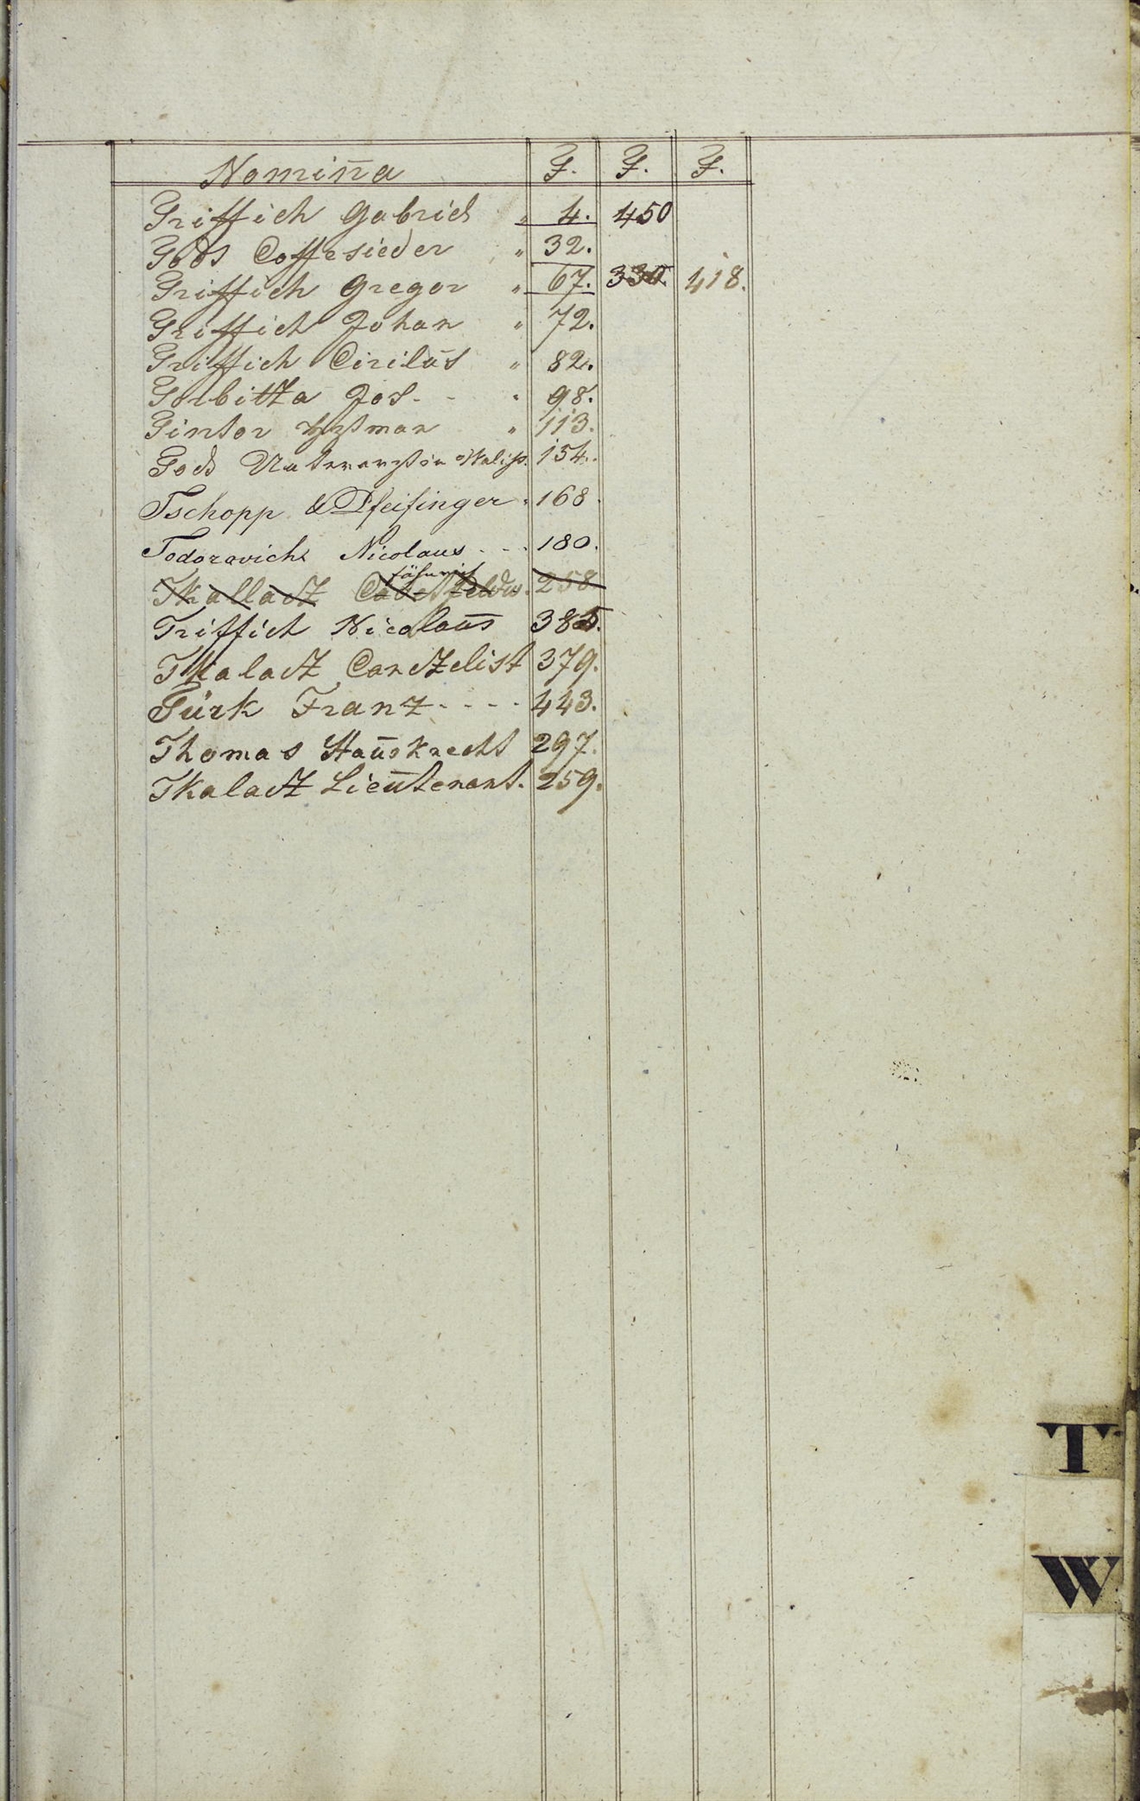 Nomina F. F. F.
Triffich Gabriel " 4. 450
Tods Coffesieder " 32.
Triffich Gregor " 67. 330. 418.
Triffich Johan " 72.
Triffich Cirilus " 82.
Torbitza Jos. - " 98.
Tintor " 113.
Tods 154.
Tschopp & Pfeifinger " 168.
Todoravich Nicolaus - - - 180.
fähnrich
Tkallactz 258
Triffich Nicolaus 385.
Tkalactz Canctzelist 379.
Türk Franz - - - - 443.
Thomas Hausknecht 297.
Tkalactz Lieutenant. 259.
T
W